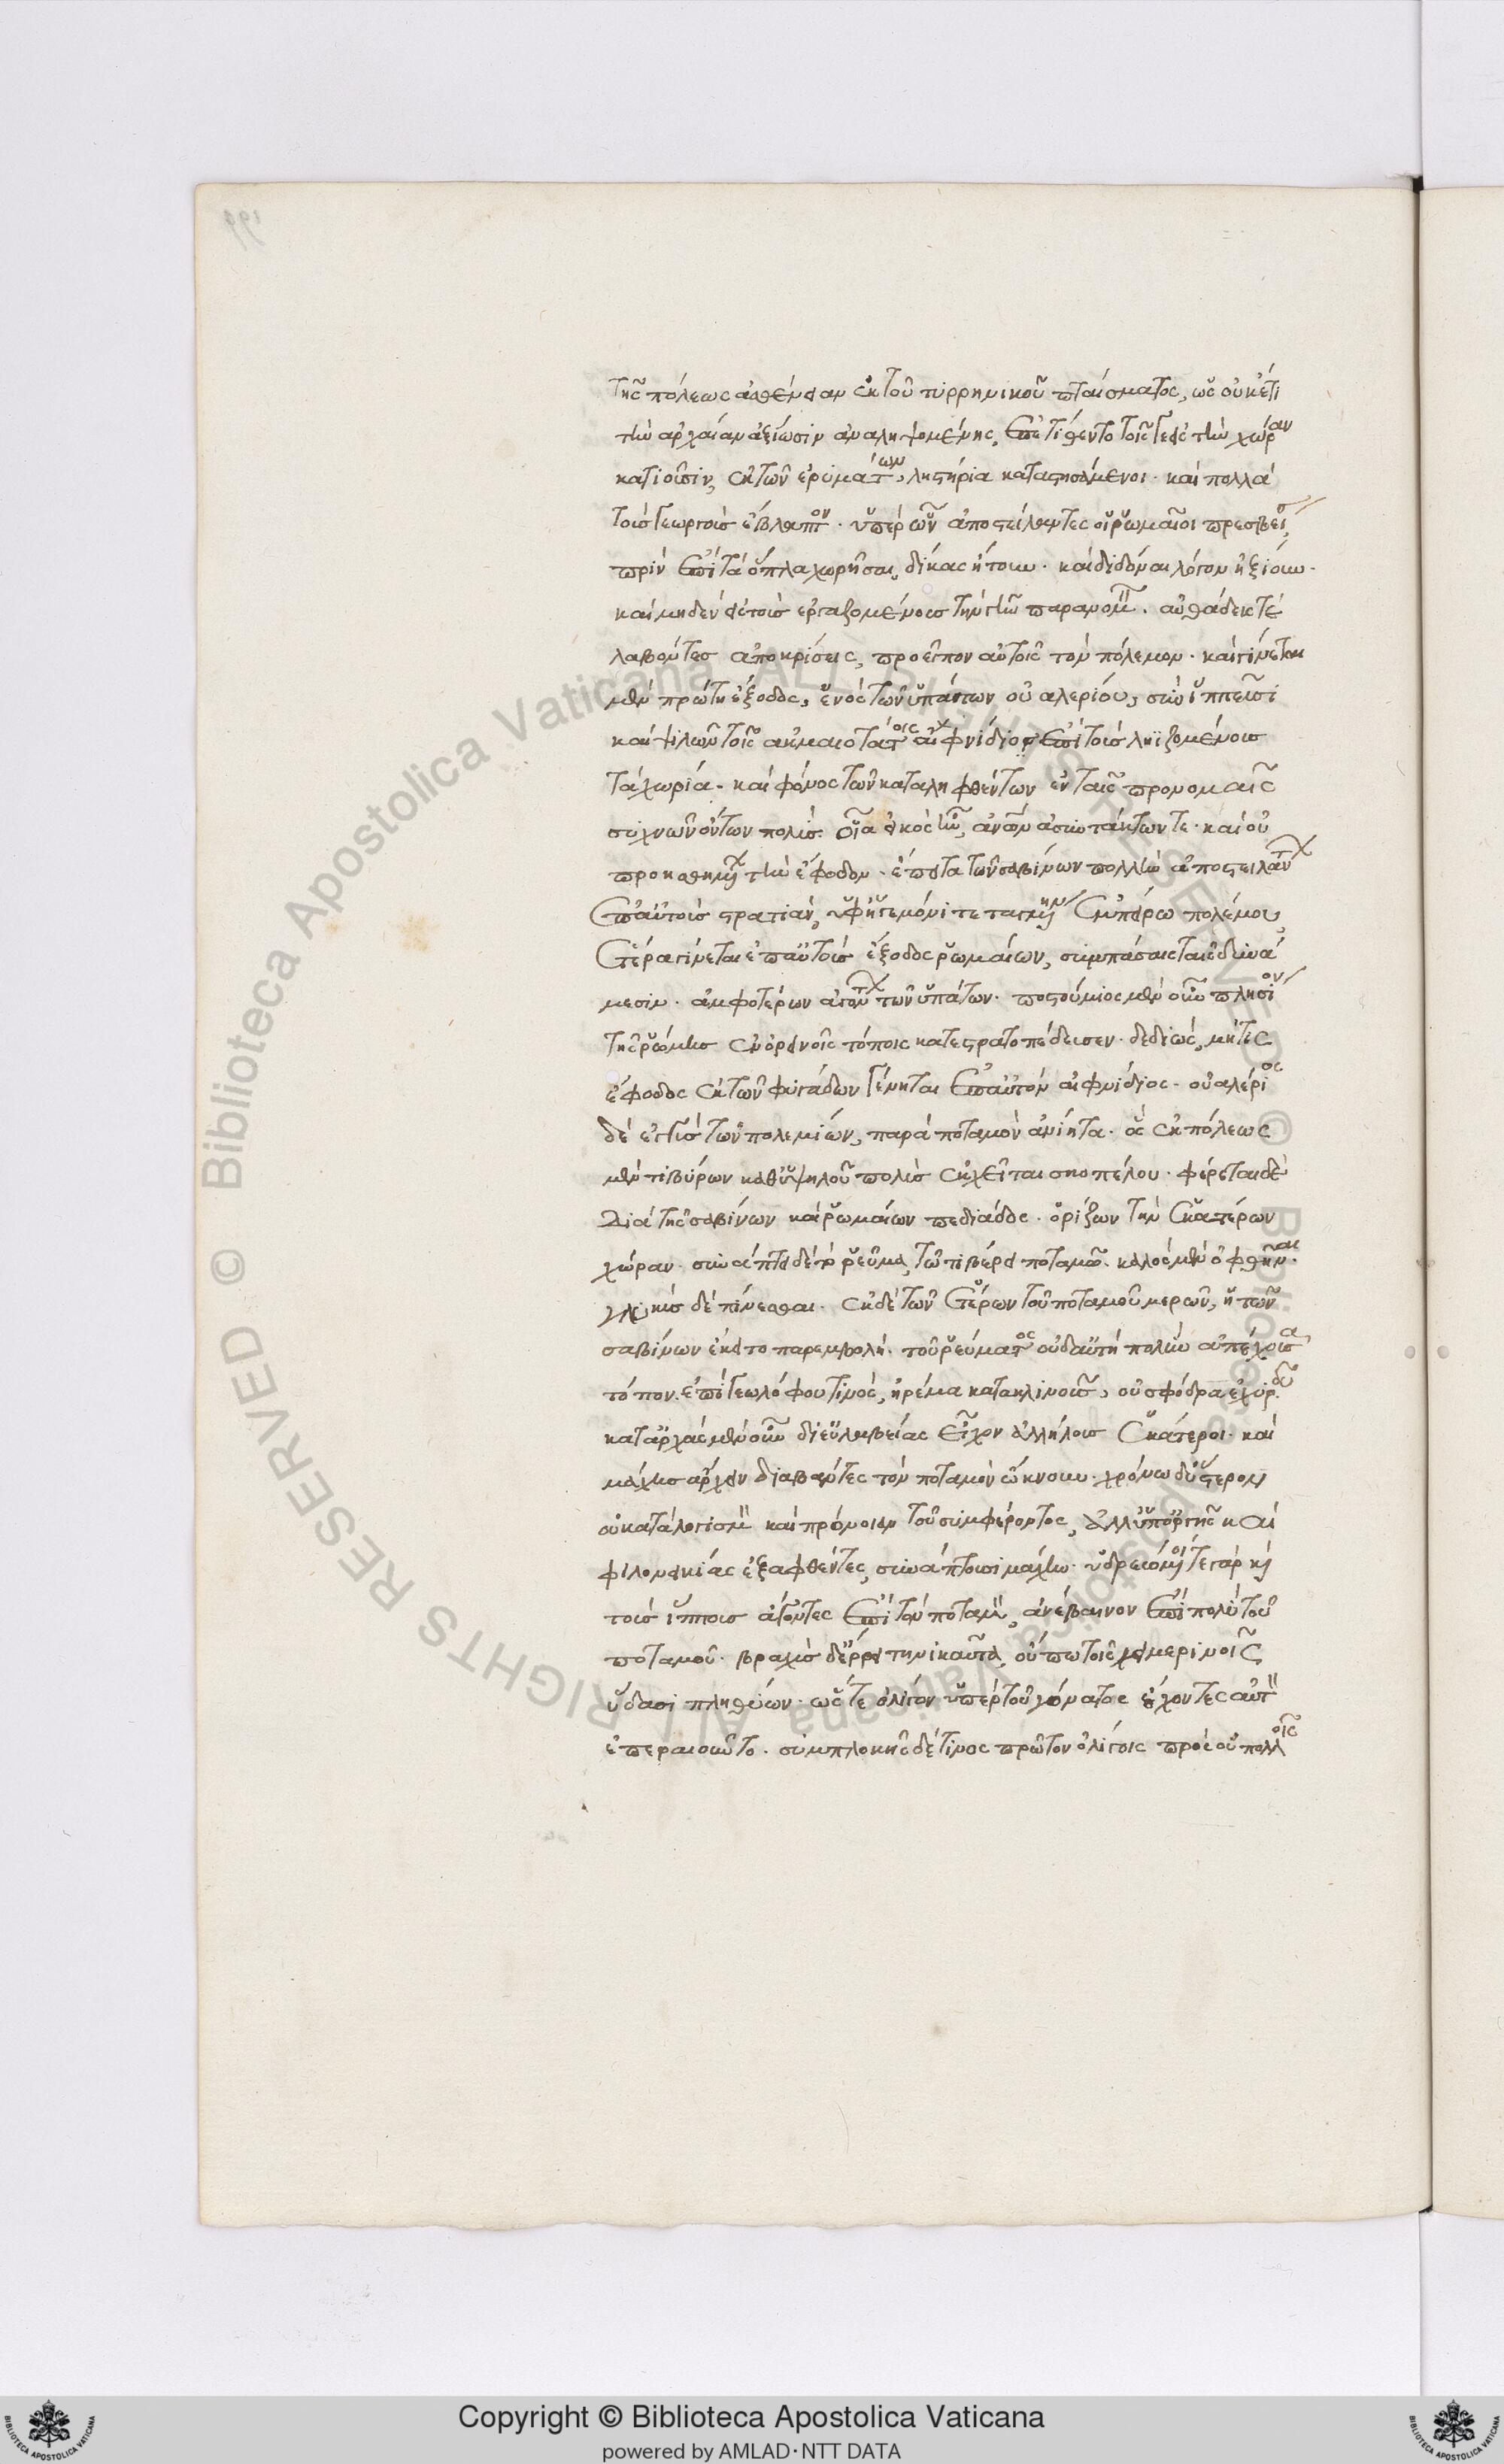 τῆς πόλεως ἀσθένειαν ἐκ τοῦ τυρρηνικοῦ πταίσματος, ὡς οὐκέτι
τὴν ἀρχαίαν ἀξίωσιν ἀναληψομένης, ἐπετίθεντο τοῖς τε εἰς τὴν χώραν
κατιοῦσιν, ἐκ τῶν ἐρυμάτων, ληστήρια καταστησάμενοι. καὶ πολλὰ
τοὺς γεωργοὺς ἔβλαπτον. ὑπὲρ ὧν ἀποστείλαντες οἱ ῥωμαῖοι πρεσβεί
πρὶν ἐπὶ τὰ ὅπλα χωρῆσαι, δίκας ᾔτουν. καὶ διδόναι λόγον ἠξίουν.
καὶ μηδὲν εἰς τοὺς ἐργαζομένους τὴν γῆν παρανομεῖν. αὐθάδεις τὲ
λαβόντες ἀποκρίσεις, προεῖπον αὐτοῖς τὸν πόλεμον. καὶ γίνεται
μὲν πρώτη ἔξοδος, ἑνὸς τῶν ὑπάτων οὐαλερίου, σὺν ἱππεῦσι
καὶ ψιλῶν τοῖς ἀκμαιοτάτοις αἰφνίδιος ἐπὶ τοὺς ληϊζομένους
τὰ χωρία. καὶ φόνος τῶν καταληφθέντων ἐν ταῖς προνομαῖς
συχνῶν ὄντων πολὺς οἷα εἰκὸς ἦν, ἀνθρώπων ἀσυντάκτων τε. καὶ οὐ
προσδεχομένων τὴν ἔφοδον. ἔπειτα τῶν σαβίνων πολλὴν ἀποστειλάντων
ἐπ' αὐτοὺς στρατιάν, ὑφ' ἡγεμόνι τεταγμένην ἐμπείρω πολέμου,
ἑτέρα γίνεται ἐπ' αὐτοὺς ἔξοδος ῥωμαίων, συμπάσαις ταῖς δυνά
μεσιν. ἀμφοτέρων ἀγόντων τῶν ὑπάτων. ποστούμιος μὲν οὖν πλησίον
τῆς ῥώμης ἐν ὀρεινοῖς τόποις κατεστρατοπέδευσεν. δεδιὼς, μή τις
ἔφοδος ἐκ τῶν φυγάδων γένηται ἐπ' αὐτὸν αἰφνίδιος. οὐαλέριος
δὲ ἐγγὺς τῶν πολεμίων, παρὰ ποταμὸν ἀνίητα. ὃς ἐκ πόλεως
μὲν τιβύρων καθ' ὑψηλοῦ πολὺς ἐκχεῖται σκοπέλου. φέρεται δὲ
διὰ τῆς σαβίνων καὶ ῥωμαίων πεδιάδος. ὁρίζων τὴν ἑκατέρων
χώραν. συνάπτει δὲ τὸ ῥεῦμα τῶ τιβέρει ποταμῶ. καλὸς μὲν ὀφθῆναι.
γλυκὺς δὲ πίνεσθαι. ἐκ δὲ τῶν ἑτέρων τοῦ ποταμοῦ μερῶν, ἡ τῶν
σαβίνων ἔκειτο παρεμβολή. τοῦ ῥεύματος οὐδ' αὐτὴ πολὺν ἀπέχουσα
τόπον. ἐπὶ γεωλόφου τινὸς, ἠρέμα κατακλινοῦς, οὐ σφόδρα ἐχυροῦ
κατ' ἀρχὰς μὲν οὖν δι' εὐλαβείας εἶχον ἀλλήλους ἑκάτεροι. καὶ
μάχης ἄρχειν διαβάντες τὸν ποταμὸν ὤκνουν. χρόνω δ' ὕστερον
οὐ κατὰ λογισμὸν καὶ πρόνοιαν τοῦ συμφέροντος, ἀλλ' ὑπ' ὀργῆς καὶ
φιλονεικίας ἐξαφθέντες, συνάπτουσι μάχην. ὑδρευόμενοί τε γὰρ καὶ
τοὺς ἵππους ἄγοντες ἐπὶ τὸν ποταμὸν, ἀνέβαινον ἐπὶ πολὺ τοῦ
ποταμοῦ. βραχὺς δ' ἔρρει τηνικαῦτα, οὔπω τοῖς χειμερινοῖς
ὕδασι πληθύων. ὥστε ὀλίγον ὑπὲρ τοῦ γόνατος ἔχοντες αὐτὸν
ἐπεραιοῦντο. συμπλοκῆς δέ τινος πρῶτον ὀλίγοις πρὸς οὐ πολλοὺς